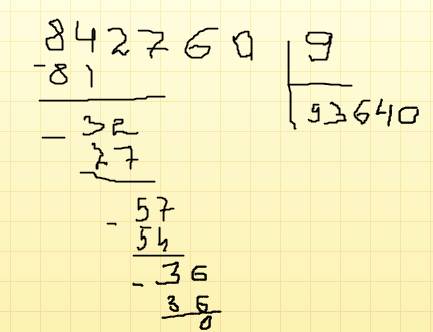 842760 9
-81 93640
- 32
27
- 57
54
- 36
36
0